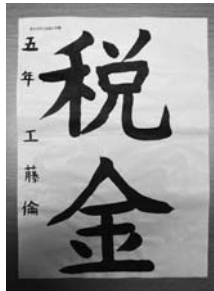 税金
五年 工藤倫